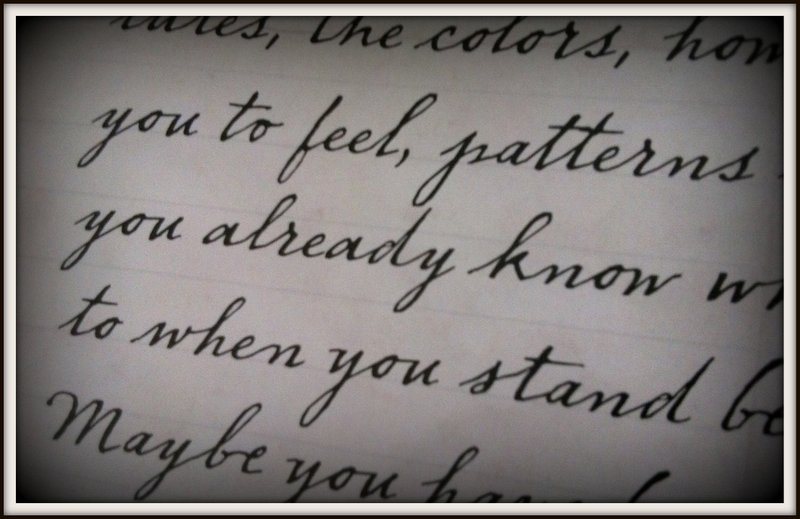 the colors,
you to feel, patterns
you already know
to when you stand
Maybe you